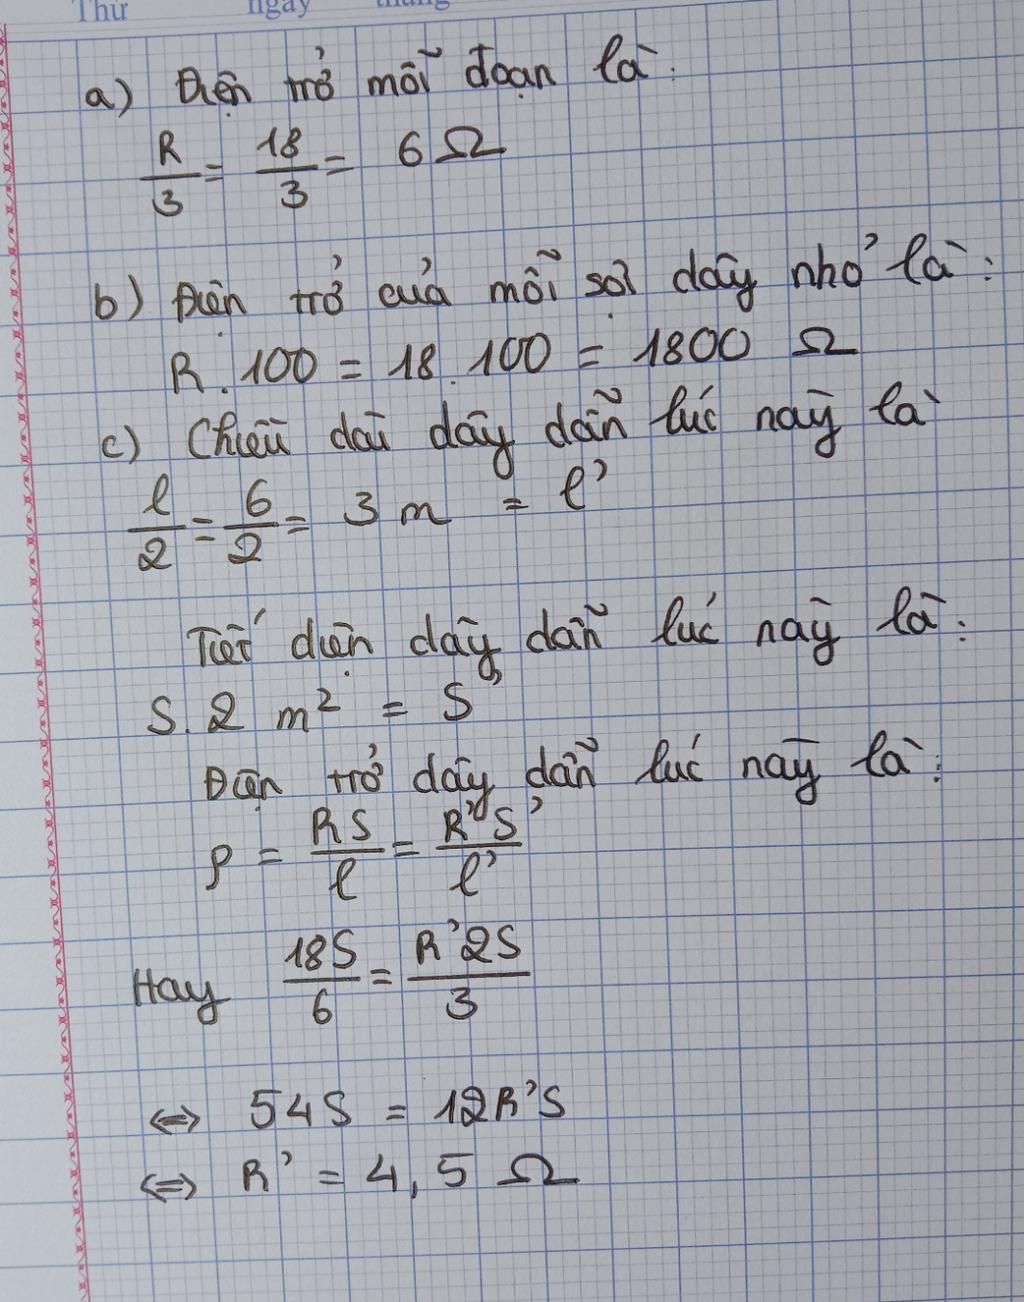 Thứ ngày tháng
a) Điện trở mỗi đoạn là:
R/3 = 18/3 = 6 Ω
b) Điện trở của mỗi sợi dây nhỏ là:
R.100 = 18.100 = 1800 Ω
c) Chiều dài dây dẫn lúc này là
l/2 = 6/2 = 3 m = l'
Tiết diện dây dẫn lúc này là:
S.2 m² = S'
Điện trở dây dẫn lúc này là:
ρ = RS/l = R'S'/l'
Hay 18S/6 = R'2S/3
⇔ 54S = 12R'S
⇔ R' = 4,5 Ω